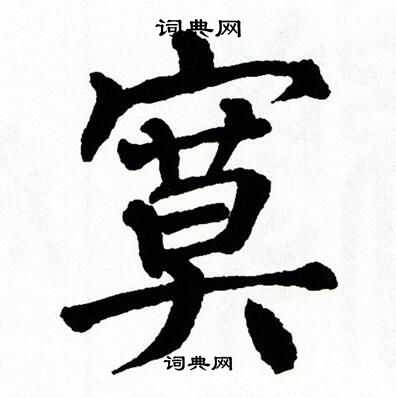 词典网
寞
词典网